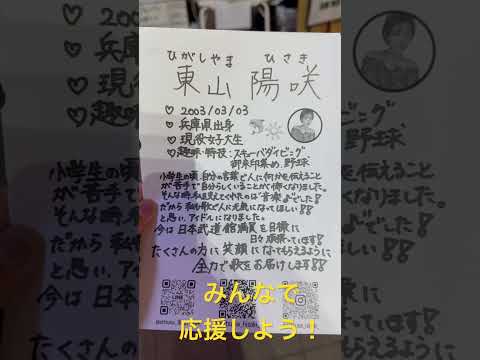 ひがしやま ひさき
東山 陽咲
♡ 2003/03/03
♡ 兵庫県出身
♡ 現役女子大生
♡ 趣味・特技:スキューバダイビング
御朱印集め、野球
小学生の頃、自分の言葉で人に何かを伝えること
が苦手で自分らしくいることが怖くなりました。
そんな時、私を支えてくれたのは"音楽"でした!
だから私も歌で人に元気になってほしい!!
と思い、アイドルになりました。
今は日本武道館満員を目標に
日々頑張っています!
たくさんの方に笑顔になってもらえるように
全力で歌をお届けします!!
LINE
みんなで
応援しよう!